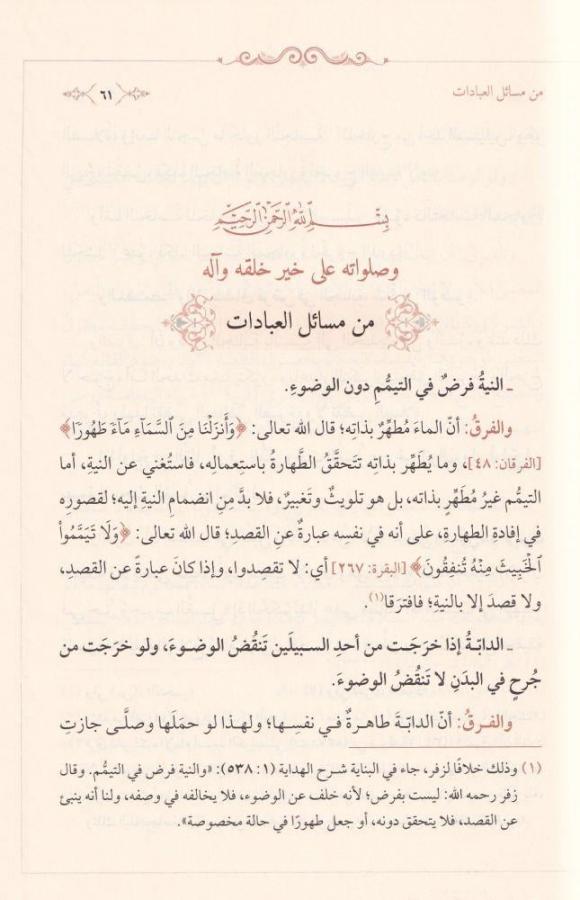 من مسائل العبادات
٦١
بِسْمِ اللَّهِ الرَّحْمَنِ الرَّحِيمِ
وصلواته على خير خلقه وآله
من مسائل العبادات
ـ النيةُ فرضٌ في التيمُّمِ دون الوضوءِ.
والفرقُ: أنّ الماءَ مُطهِّرٌ بذاتِه؛ قال الله تعالى: ﴿وَأَنزَلْنَا مِنَ السَّمَآءِ مَآءً طَهُورًا﴾
[الفرقان: ٤٨]، وما يُطهِّر بذاتِه تتحقَّقُ الطَّهارةُ باستعمالِه، فاستُغني عن النيةِ، أما
التيمُّم غيرُ مُطهِّرٍ بذاته، بل هو تلويثٌ وتغبيرٌ، فلا بدَّ مِن انضمامِ النيةِ إليه؛ لقصورِه
في إفادةِ الطهارةِ، على أنه في نفسِه عبارةٌ عن القصدِ؛ قال الله تعالى: ﴿وَلَا تَيَمَّمُوا۟
ٱلْخَبِيثَ مِنْهُ تُنفِقُونَ﴾ [البقرة: ٢٦٧] أي: لا تقصِدوا، وإذا كانَ عبارةً عن القصدِ،
ولا قصدَ إلا بالنيةِ؛ فافترَقا(١).
ـ الدابّةُ إذا خرَجَت من أحدِ السبيلَين تَنقُضُ الوضوءَ، ولو خرَجَت من
جُرحٍ في البدَنِ لا تَنقُضُ الوضوءَ.
والفرقُ: أنّ الدابّةَ طاهرةٌ في نفسِها؛ ولهذا لو حمَلَها وصلَّى جازت
(١) وذلك خلافًا لزفر، جاء في البناية شرح الهداية (١: ٥٣٨): «والنية فرض في التيمُّم. وقال
زفر رحمه الله: ليست بفرض؛ لأنه خلف عن الوضوء، فلا يخالفه في وصفه، ولنا أنه ينبئ
عن القصد، فلا يتحقق دونه، أو جعل طهورًا في حالة مخصوصة».